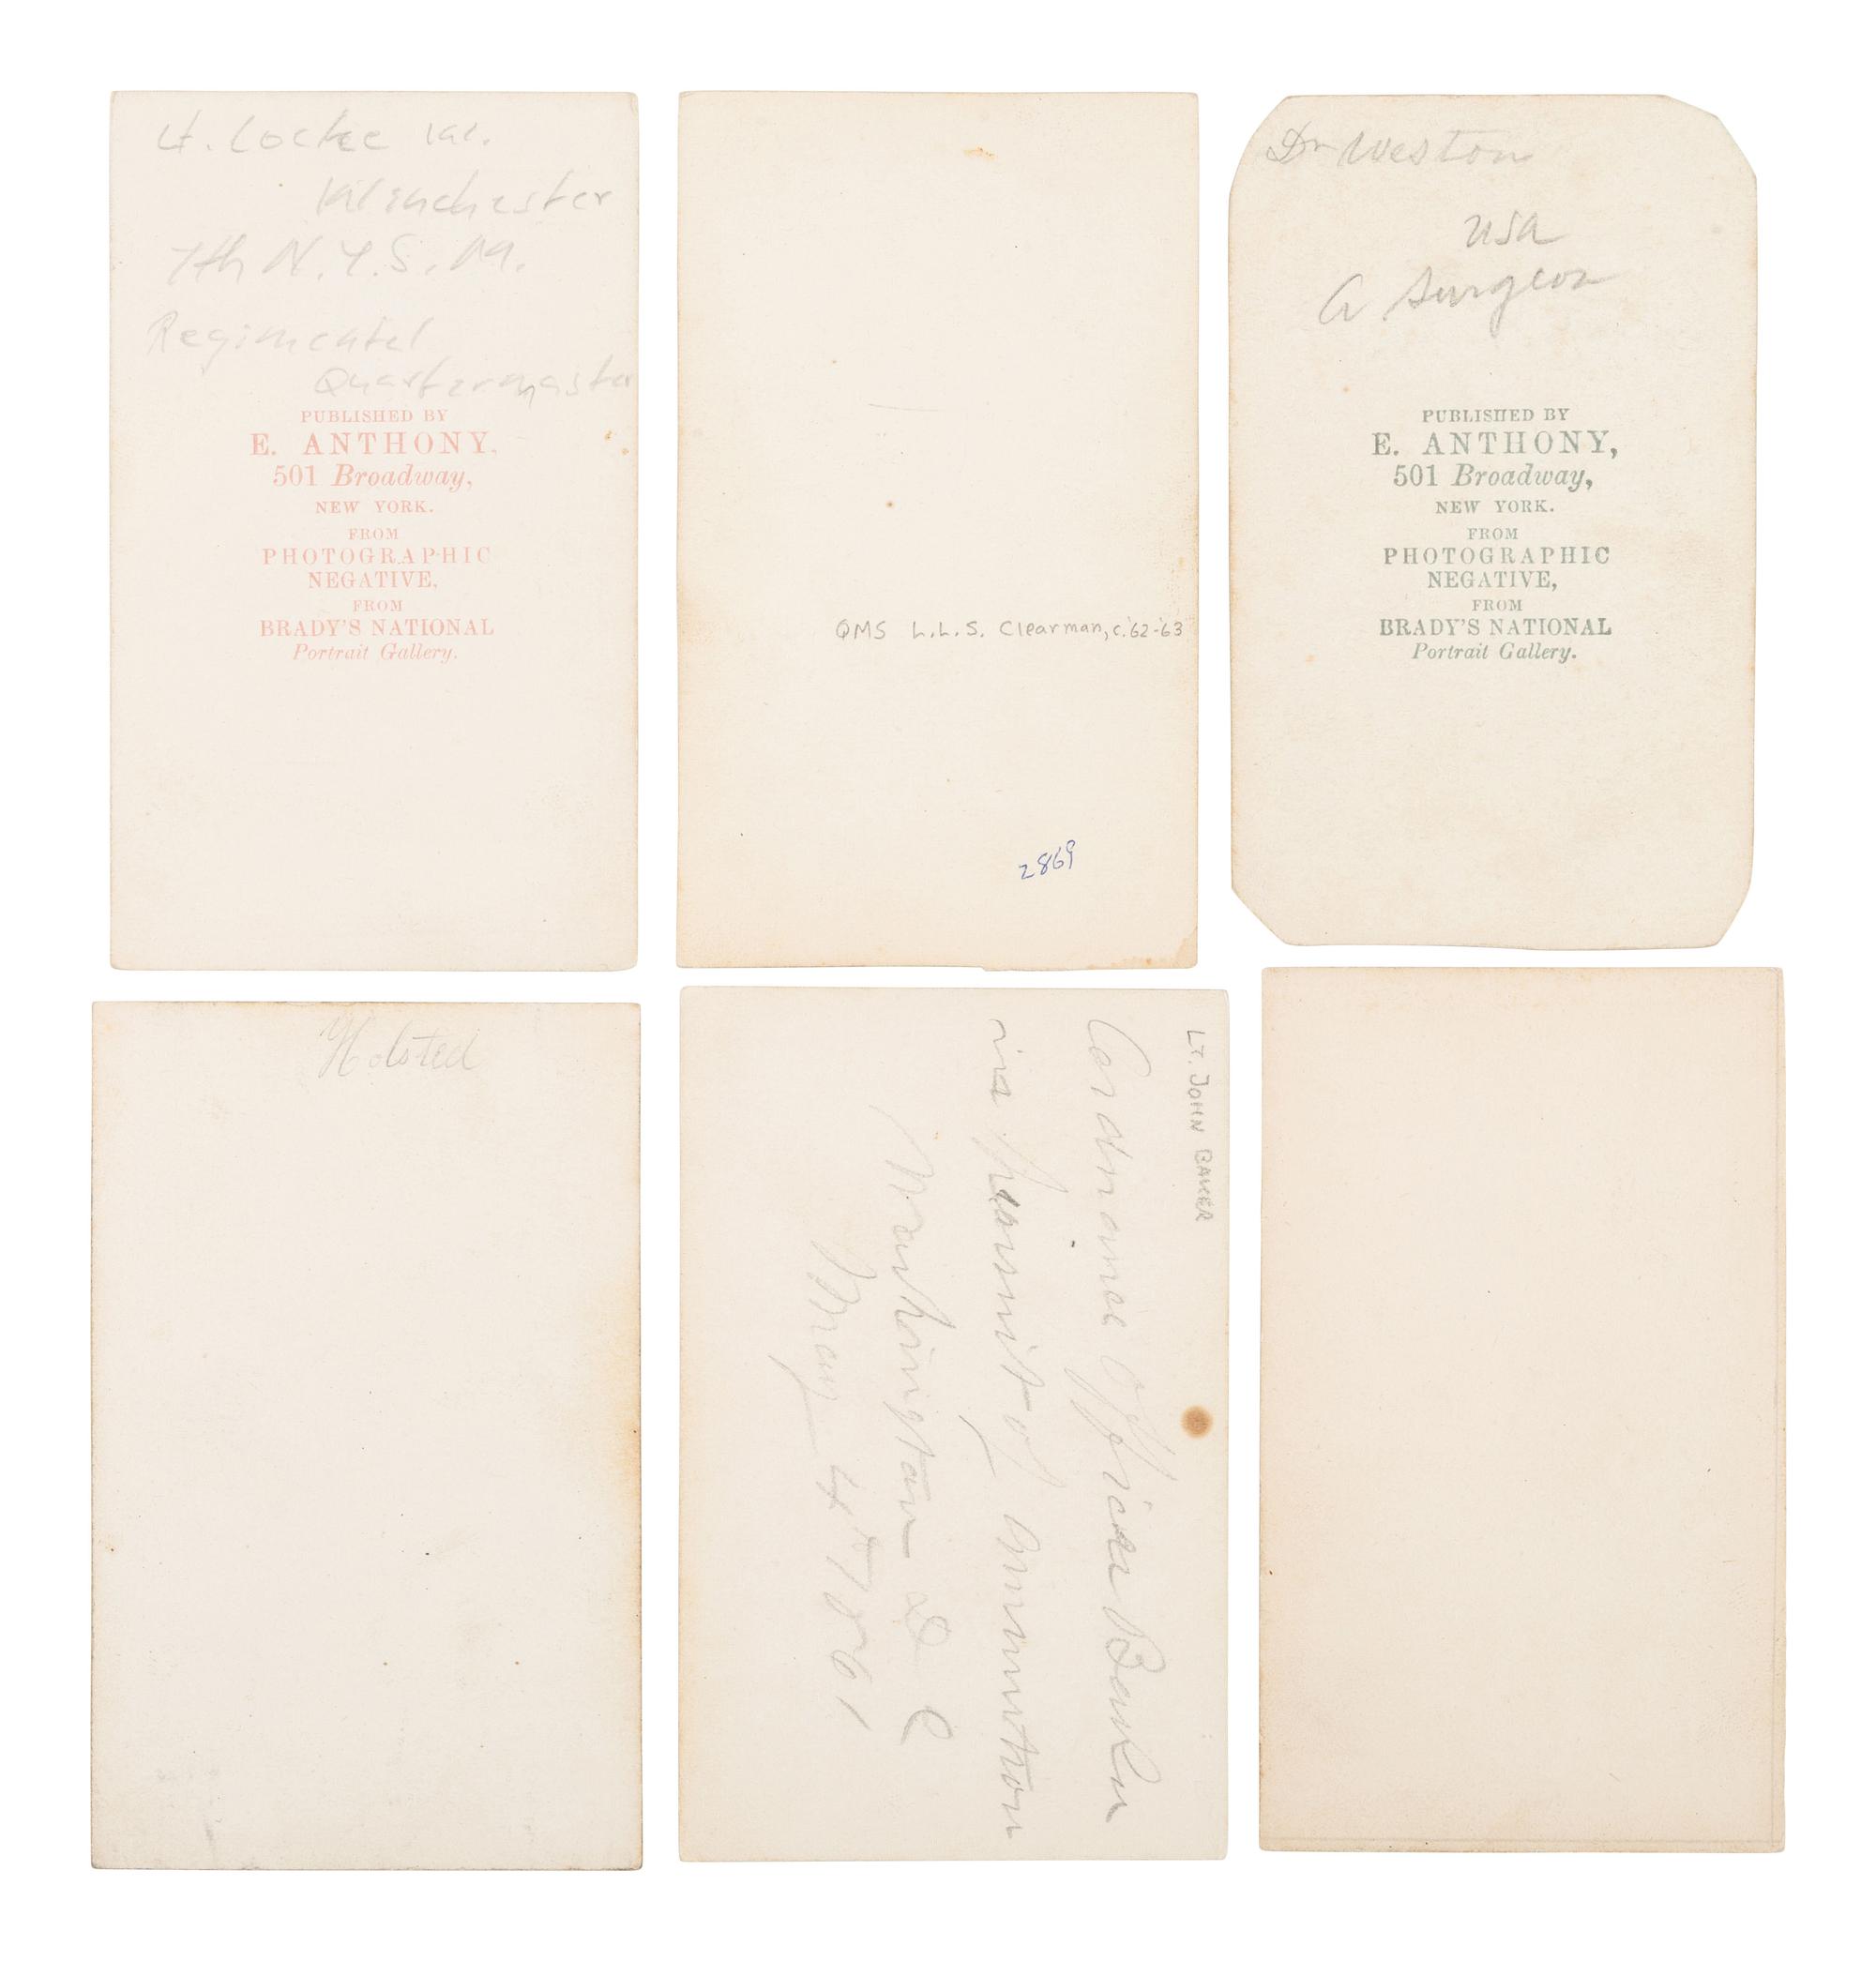 Lt. Locke W.
Winchester
7th N.Y.S.M.
Regimental
Quartermaster
PUBLISHED BY
E. ANTHONY,
501 Broadway,
NEW YORK.
FROM
PHOTOGRAPHIC
NEGATIVE,
FROM
BRADY'S NATIONAL
Portrait Gallery.
QMS L.L.S. Clearman, c.'62-'63
2869
Dr Weston
USA
A Surgeon
PUBLISHED BY
E. ANTHONY,
501 Broadway,
NEW YORK.
FROM
PHOTOGRAPHIC
NEGATIVE,
FROM
BRADY'S NATIONAL
Portrait Gallery.
Holsted
LT. JOHN BAKER
Ordnance Officer Baker
in pursuit of ammunition
Washington D C
May 4th 1861